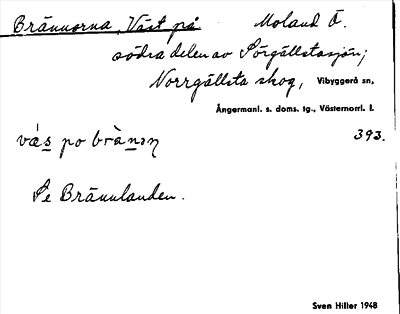 Brännorna, Väst på Moland Ö.
södra delen av Sörgällstasjön;
Norrgällsta skog, Vibyggerå sn,
Ångermanl. s. doms. tg., Västernorrl. l.
vǽs po brànən 393.
Se Brännlanden.
Sven Hiller 1948